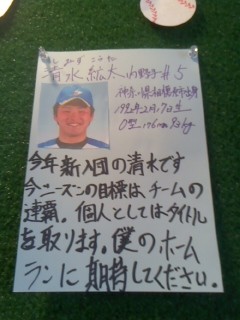 しみず こうた
清水 紘太 内野手 #5
神奈川県相模原市出身
1992年2月17日生
O型 176cm 93kg
今年新入団の清水です
今シーズンの目標は、チームの
連覇。個人としてはタイトル
を取ります。僕のホーム
ランに期待してください。